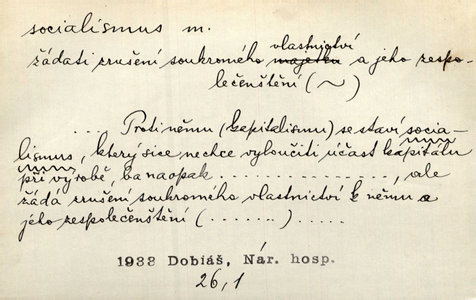 socialismus m.
vlastnictví
žádati zrušení soukromého majetku a jeho zespo-
lečenštění (~)
... Proti němu (kapitalismu) se staví socia-
lismus, který sice nechce vyloučiti účast kapitálu
při výrobě, ba naopak ................., ale
žáda zrušení soukromého vlastnictví k němu a
jeho zespolečenštění (.......).....
1933 Dobiáš, Nár. hosp.
26,1